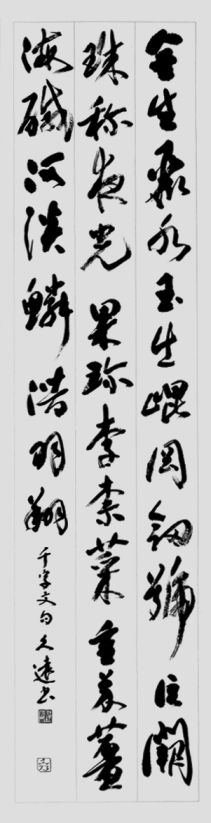 金生麗水玉出崐岡劔號巨闕
珠称夜光果珍李柰菜重芥薑
海鹹河淡鱗潜羽翔
千字文句 久遠書